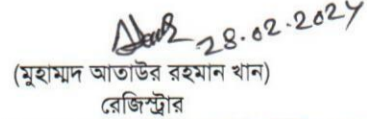 28.02.2024
(মুহাম্মদ আতাউর রহমান খান)
রেজিস্ট্রার